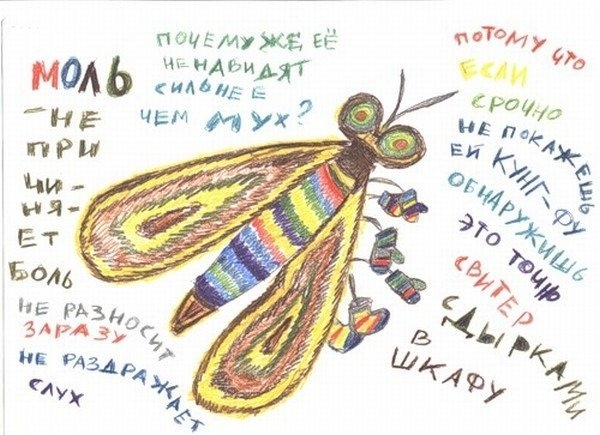 МОЛЬ
-НЕ
ПРИ
ЧИ-
НЯ-
ЕТ
БОЛЬ
НЕ РАЗНОСИТ
ЗАРАЗУ
НЕ РАЗДРАЖАЕТ
СЛУХ
ПОЧЕМУ ЖЕ ЕЁ
НЕНАВИДЯТ
СИЛЬНЕЕ
ЧЕМ МУХ?
ПОТОМУ ЧТО
ЕСЛИ
СРОЧНО
НЕ ПОКАЖЕШЬ
ЕЙ КУНГ-ФУ
ОБНАРУЖИШЬ
ЭТО ТОЧНО
СВИТЕР
С ДЫРКАМИ
В
ШКАФУ